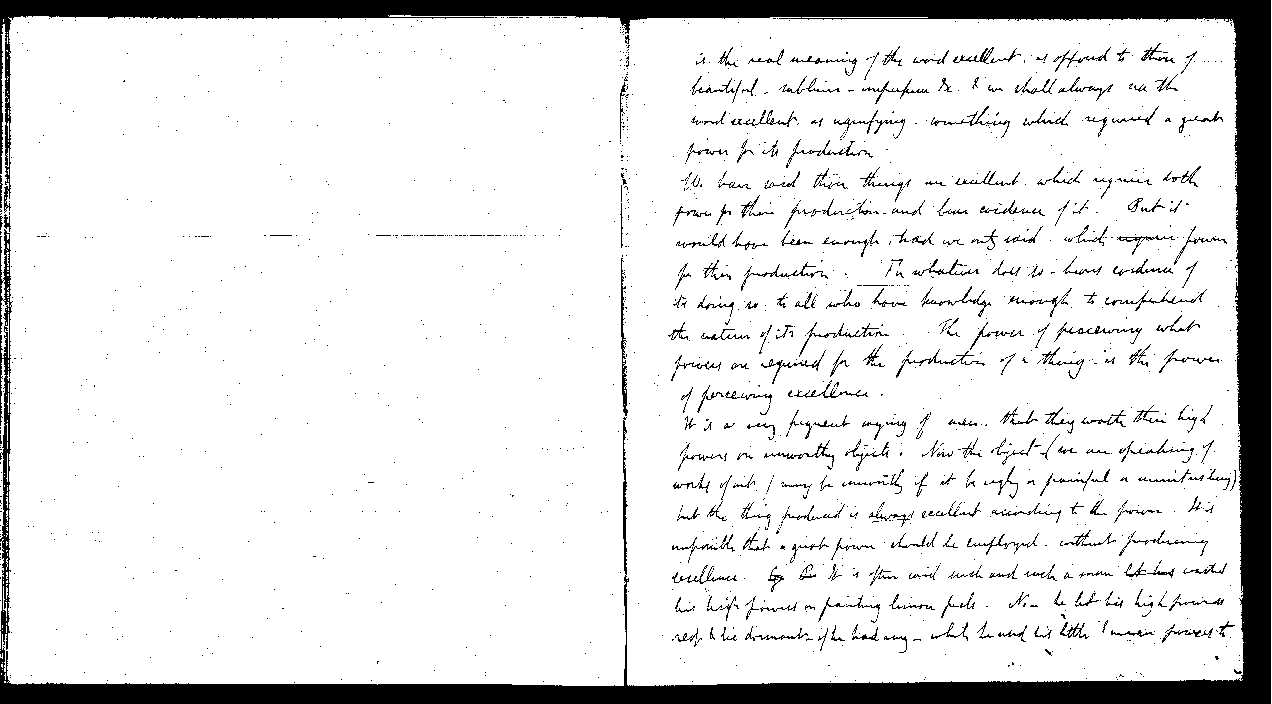 is the real meaning of the word excellent, as opposed to those of
beautiful - sublime - &c. & we shall always use the
word excellent as signifying something which required a great
power for its production
We have said those things are excellent which require both
power for their production and bear evidence of it. But it
would have been enough, had we only said which require power
for their production. For whatever does so - bears evidence of
its doing so to all who have knowledge enough to comprehend
the nature of its production. The power of perceiving what
powers are required for the production of a thing is the power
of perceiving excellence.
It is a very frequent saying of men that they waste their high
powers on unworthy objects. Now the object (we are speaking of
works of art) may be unworthy if it be ugly or painful or uninteresting)
but the thing produced is always excellent according to the power. It is
impossible that a great power should be employed without producing
excellence. It is often said such and such a man has wasted
his high powers on painting lemon peels. Now he let his high powers
rest & lie dormant if he had any - while he used his little & mean powers to